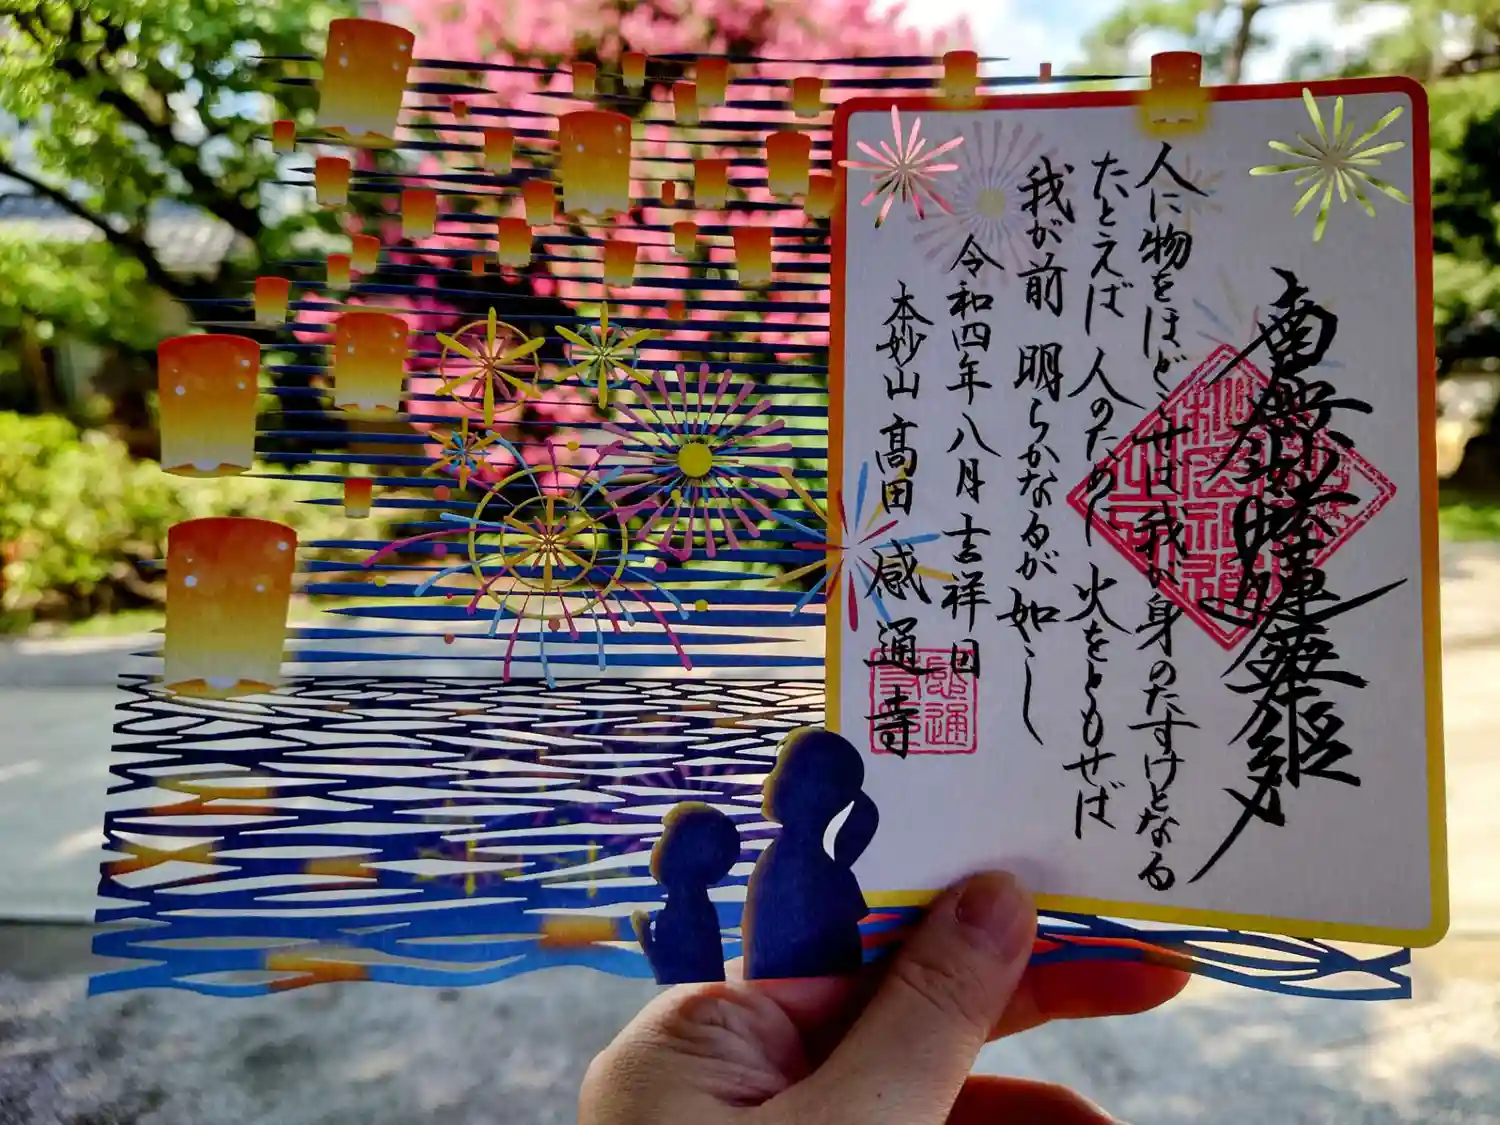 南無妙法蓮華経
人に物をほどこせば我が身のたすけとなる
たとえば人のために火をともせば
我が前 明らかなるが如し
令和四年八月吉祥日
本妙山 高田 感通寺